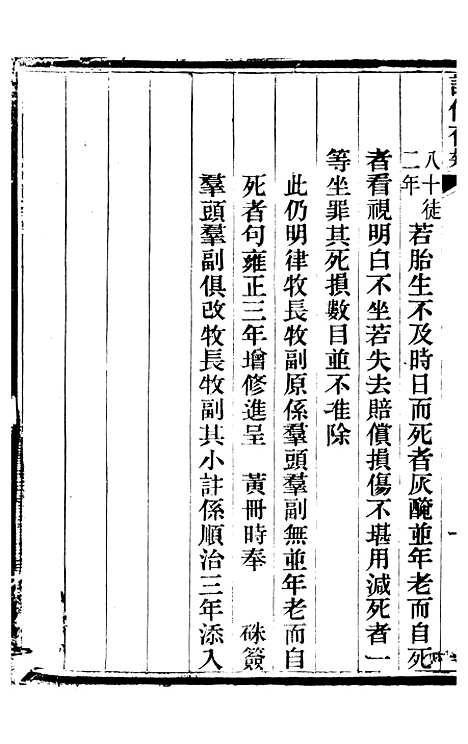 八十徒
二年
若胎生不及時日而死者灰醃並年老而自死
者看視明白不坐若失去賠償損傷不堪用減死者一
等坐罪其死損數目並不准除
此仍明律牧長牧副原係羣頭羣副無並年老而自
死者句雍正三年增修進呈　黃冊時奉　硃簽
羣頭羣副俱改牧長牧副其小註係順治三年添入